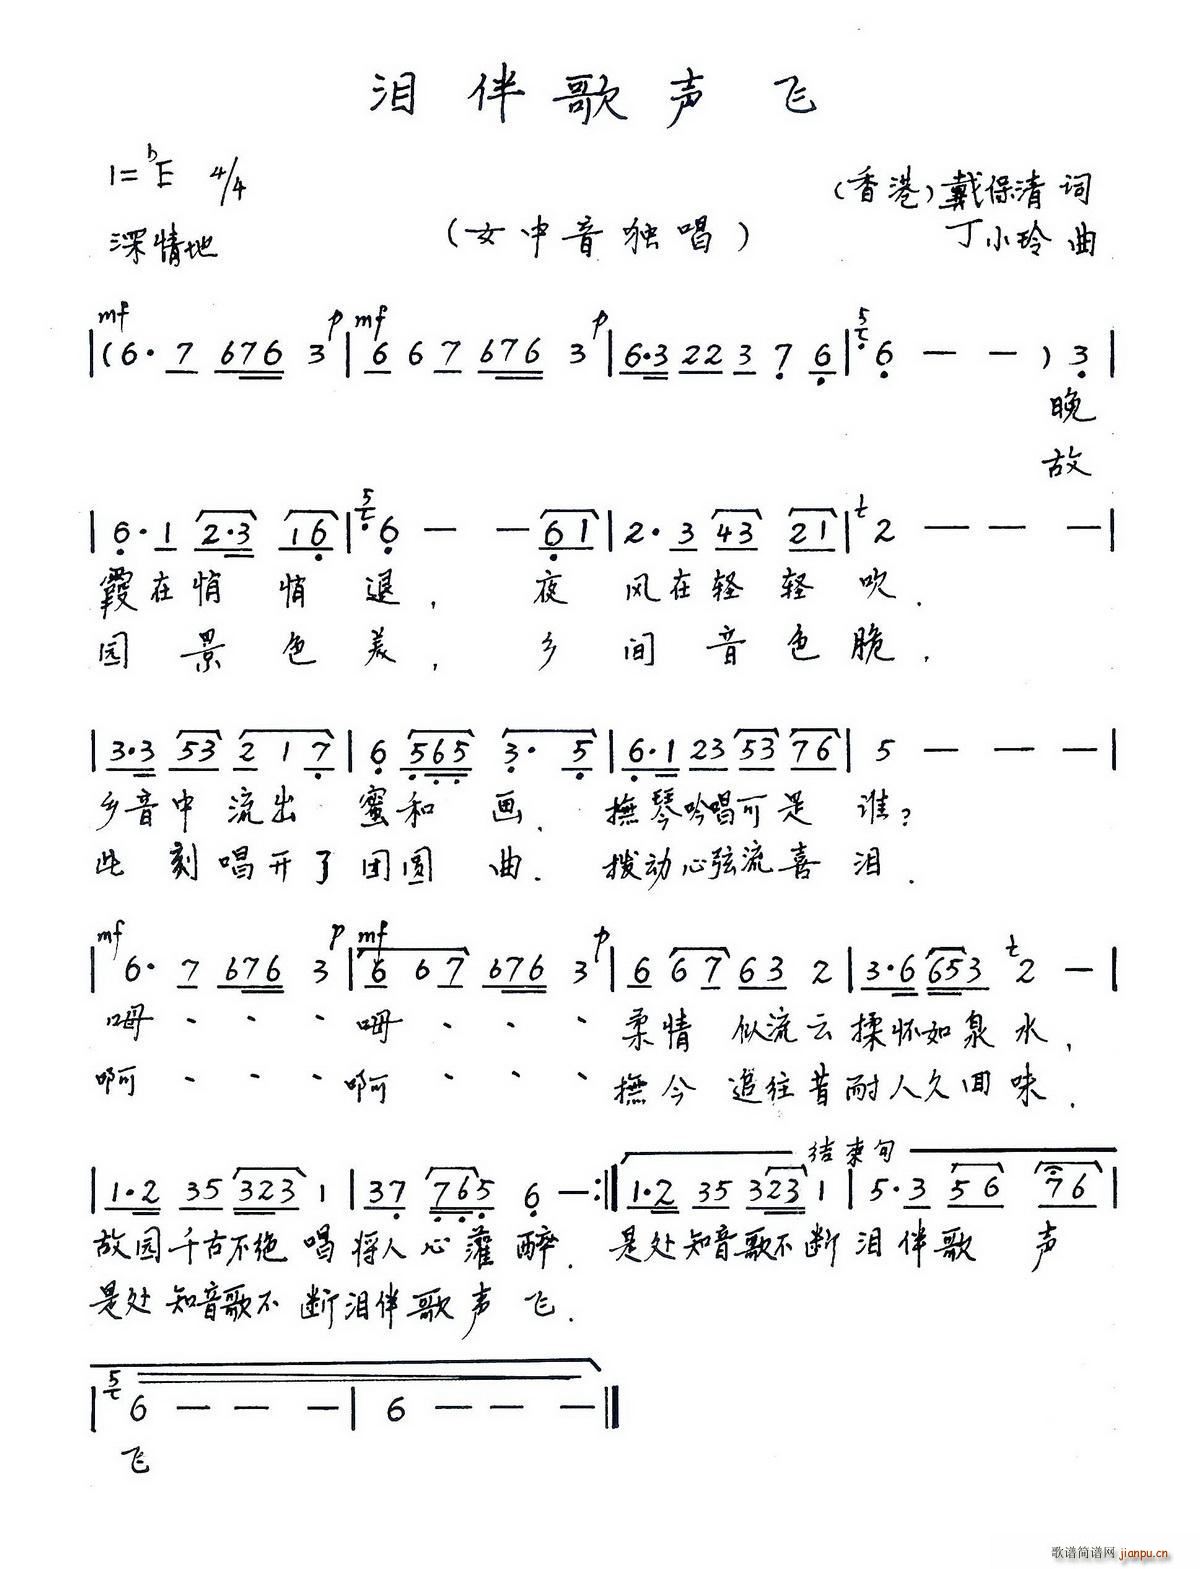 泪伴歌声飞
1=♭E 4/4
(香港)戴保清 词
深情地
(女中音独唱)
丁小玲 曲
mf p mf p 5
|(6· 7 676 3|6 6 7 676 3|6·3 22 3 7 6|6 — — ) 3|
晚
故
5
|6·1 2·3 16|6 — — 61|2·3 43 21|2 — — —|
霞在悄悄退,夜风在轻轻吹.
园景色美,乡间音色脆,
|3·3 53 2 1 7|6 565 3· 5|6·1 23 53 76|5 — — —|
乡音中流出蜜和画、撫琴吟唱可是谁?
此刻唱开了团圆曲.拨动心弦流喜泪.
mf p mf p
|6· 7 676 3|6 6 7 676 3|6 67 63 2|3·6 653 2 —|
呣 - - - 呣 - - - 柔情似流云揉怀如泉水,
啊 - - - 啊 - - - 撫今追往昔耐人久回味.
结束句
|1·2 35 323 1|37 765 6 —:‖1·2 35 323 1|5·3 56 76|
故园千古不绝唱将人心灌醉.是处知音歌不断泪伴歌声
是处知音歌不断泪伴歌声飞.
5
|6 — — —|6 — — —‖
飞
歌谱简谱网 jianpu.cn